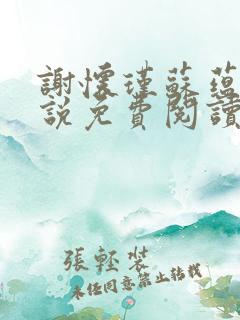 謝懷瑾蘇蘊
說免費閱讀
張輕裝
未经同意禁止转载